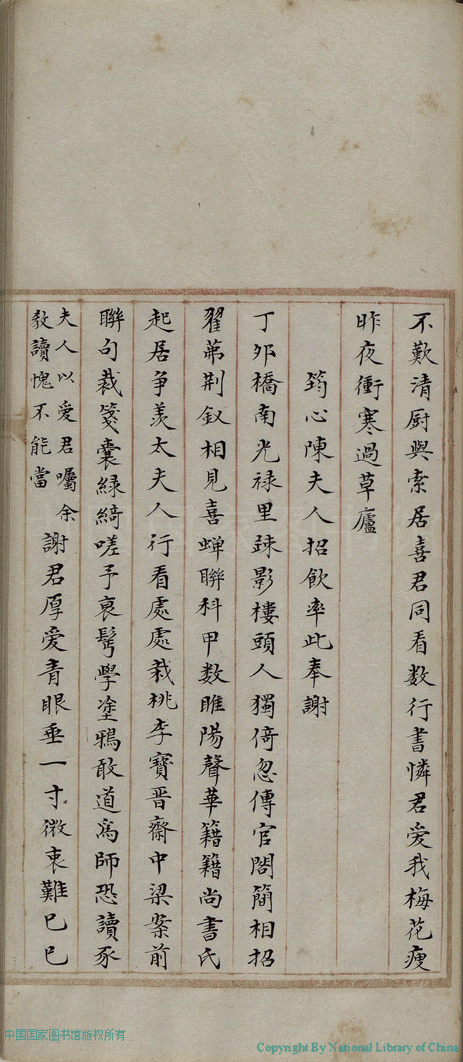 不歎清厨與索居喜君同看数行書憐君愛我梅花瘦
昨夜衝寒過草廬
筠心陳夫人招飲率此奉謝
丁夘橋南光禄里疎影樓頭人獨倚忽傳官閣簡相招
翟茀荆釵相見喜蝉聯科甲数睢陽聲華籍籍尚書氏
起居争羡太夫人行看處處栽桃李寶晋齋中梁案前
聯句裁箋囊緑綺嗟予衰鬢學塗鴉敢道為師恐讀豕
夫人以愛君囑余
教讀愧不能當
謝君厚愛青眼垂一寸微衷難已已
中国国家图书馆版权所有
Copyright By National Library of China